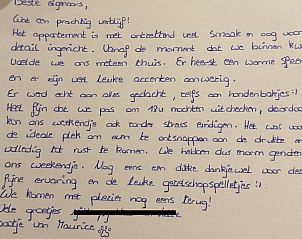 Beste eigenaars,
Wat een prachtig verblijf!
Het appartement is met ontzettend veel smaak en oog voor
detail ingericht. Vanaf de moment dat we binnen kw
voelde we ons meteen thuis. Er heerst een warme sfeer
en er zijn veel leuke accenten aanwezig.
Er werd echt aan alles gedacht, zelfs aan hondenbakjes :)
Heel fijn dat we pas om 12u mochten uitchecken, daardoor
kon ons weekendje ook zonder stress eindigen. Het was voor
de ideale plek om even te ontsnappen aan de drukte en
volledig tot rust te komen. We hebben dus enorm genoten
ons weekendje. Nog eens een dikke dankjewel voor de
fijne ervaring en de leuke gezelschapspelletjes :)
We komen met plezier nog eens terug!
Vele groetjes
baasje van Maurice